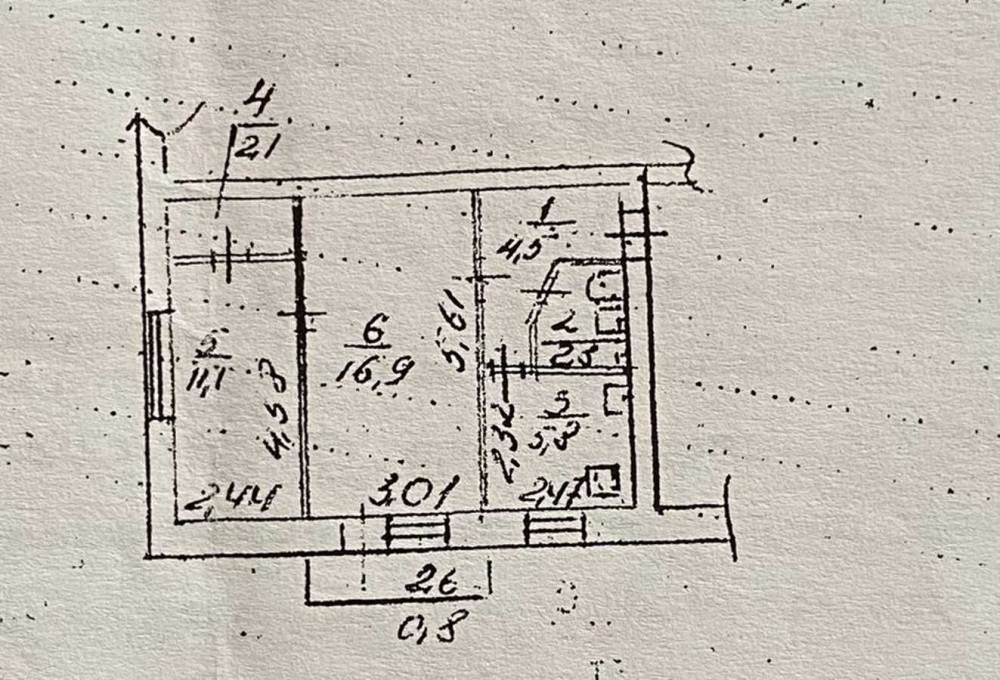 4
2,1
1
4,5
2
2,3
6
16,9
5,61
5
11,1
4,58
3
5,8
2,32
2,44
3,01
2,47
26
0,8